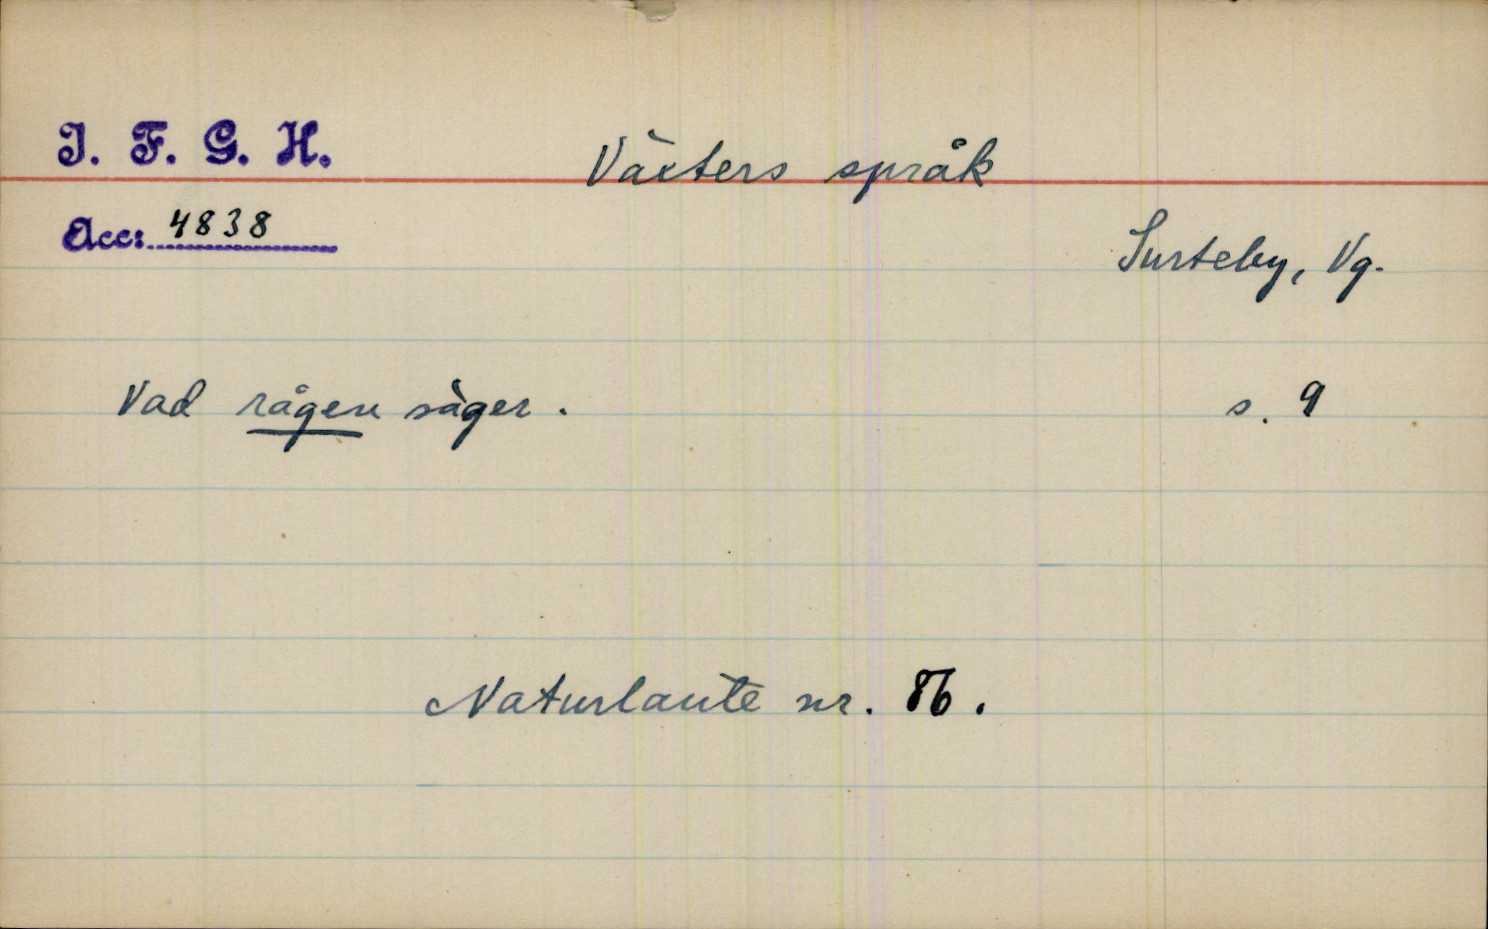 I. F. G. H.
Växters språk
Acc: 4838
Surteby, Vg.
Vad rågen säger. s. 9
Naturlaute nr. 86.